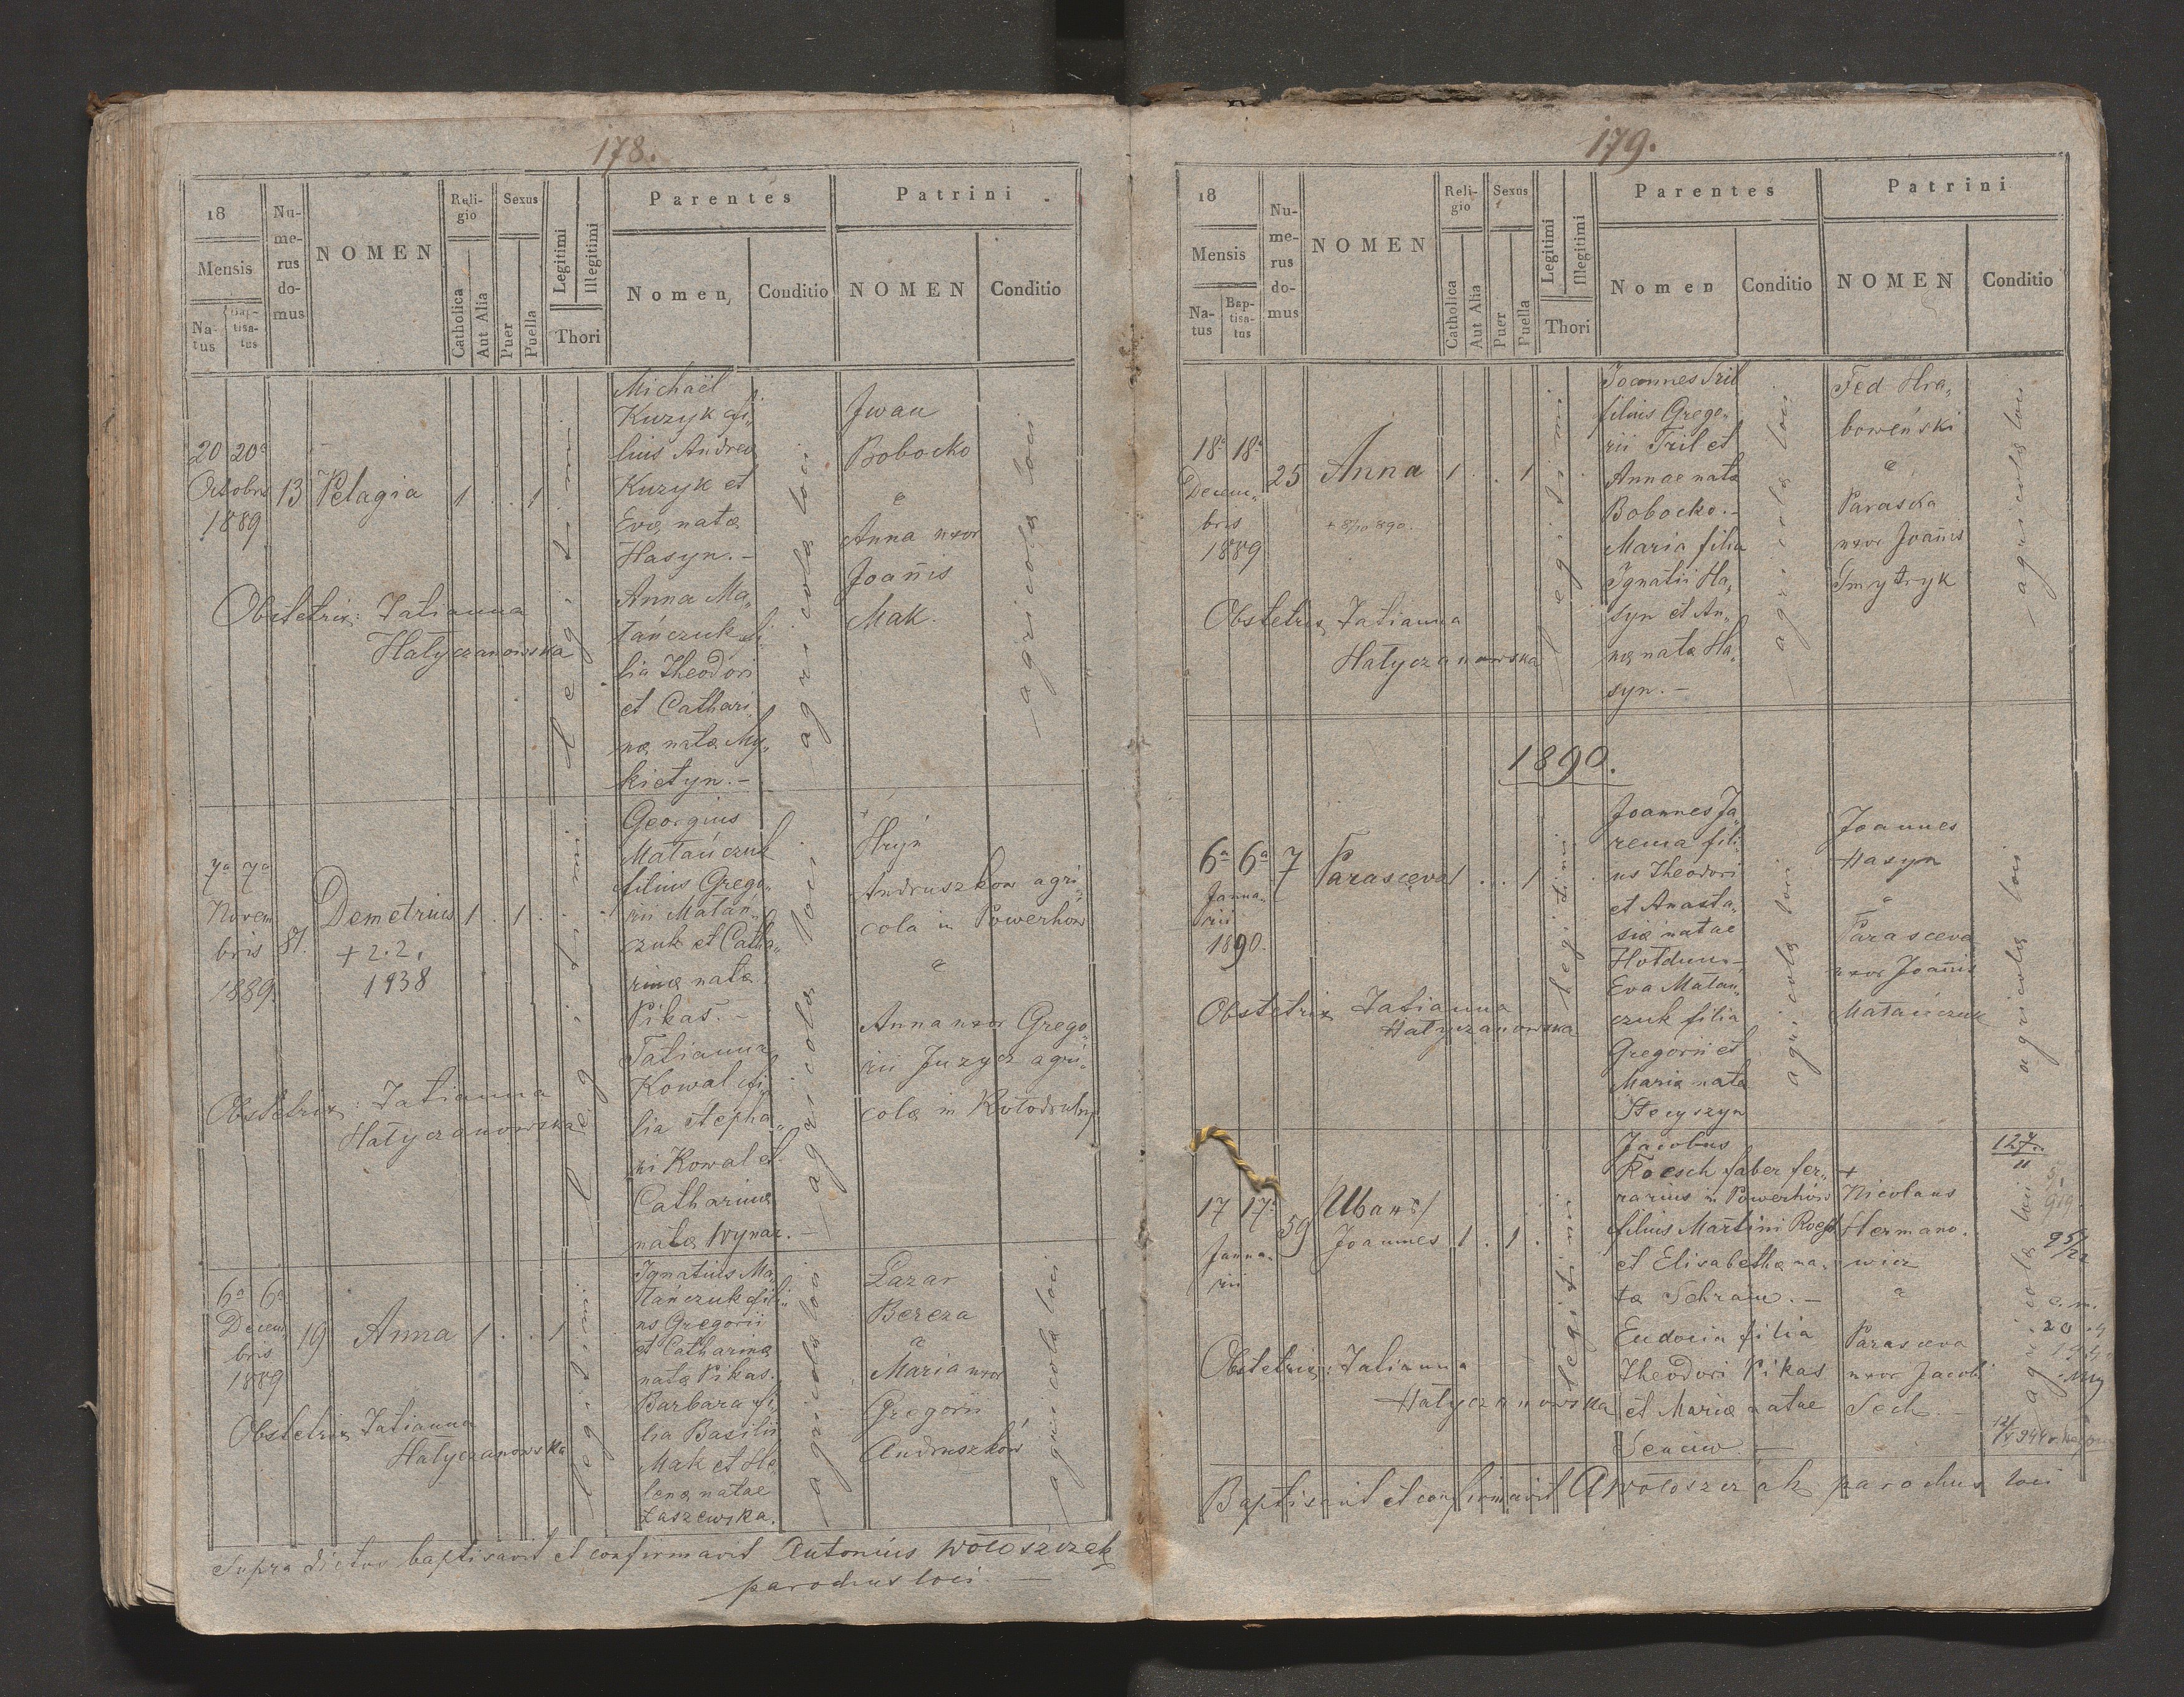 178.
18
Mensis
Na-
tus
Bap-
tisa-
tus
Nu-
me-
rus
do-
mus
NOMEN
Reli-
gio
Catholica
Aut Alia
Sexus
Puer
Puella
Legitimi
Illegitimi
Thori
Parentes
Nomen
Conditio
Patrini
NOMEN
Conditio
20 20a
Octobris
1889
13
Pelagia
1 . . 1
legitimi
Michaël
Kuzyk fi„
lius Andreæ
Kuzyk et
Evæ natæ
Hasyn. –
Anna Ma„
tańczuk fi„
lia Theodori
et Cathari„
næ natæ My„
kietyn. –
agricolæ loci
Iwan
Bobocko
et
Anna uxor
Joañis
Mak.
agricolæ loci
Obstetrix: Tatianna
Hałyczanowska
7a 7a
Novem
bris
1889.
81.
Demetrius
+ 2.2.
1938
1 . 1 .
legitimi
Georgius
Matańczuk
filius Grego„
rii Matań„
czuk et Catha„
rinæ natæ
Pikas. –
Tatianna
Kowal fi„
lia Stepha„
ni Kowal et
Catharinæ
natæ Wynar. –
agricolæ loci
Hryń
Andruszków agri„
cola in Powerhów
et
Anna uxor Grego„
rii Juzycz agri„
colæ in
Obstetrix: Tatianna
Hałyczanowska
6a 6a
Decem
bris
1889
19
Anna
1 . . 1
legitimi
Ignatius Ma„
tańczuk fili„
us Gregorii
et Catharinæ
natæ Pikas.
Barbara fi„
lia Basilii
Mak et He„
lenæ natae
Łaszewska.
agricolæ loci
Lazar
Bereza
et
Maria uxor
Gregorii
Andruszków
agricolæ loci
Obstetrix Tatianna
Hałyczanowska
Supra dictos baptisavit et confirmavit Antonius Wołoszczak
parochus loci. –
179.
18
Mensis
Na-
tus
Bap-
tisa-
tus
Nu-
me-
rus
do-
mus
NOMEN
Reli-
gio
Catholica
Aut Alia
Sexus
Puer
Puella
Legitimi
Illegitimi
Thori
Parentes
Nomen
Conditio
Patrini
NOMEN
Conditio
18a 18a
Decem„
bris
1889
25
Anna
+ 8/10 890.
1 . . 1
legitimi
Joannes Tril
filius Grego„
rii Tril et
Annae natæ
Bobocko. –
Maria filia
Ignatii Ha„
syn et An„
næ natæ Ha„
syn. –
agricolæ loci
Fed Hra„
boweński
et
Paraska
uxor Joañis
Dmytryk
agricolæ loci
Obstetrix Tatianna
Hałyczanowska
1890.
6a 6a
Janua„
rii
1890.
7
Parasceva
1 . . 1
legitimi
Joannes Ja„
rema fili„
us Theodori
et Anasta„
siæ natae
Eva Matań„
czuk filia
Gregorii et
Mariæ natæ
Stecyszyn
agricolæ loci
Joannes
Hasyn
et
Parasceva
uxor Joañis
Matańczuk
agricolæ loci
Obstetrix Tatianna
Hałyczanowska
17 17a
Janua„
rii
59
Joannes
1 . 1 .
legitimi
Jacobus
Roesch faber fer„
rarius in Powerhów
filius Martini Roesch
et Elisabethæ na„
tæ Schram. –
Eudocia filia
Theodori Pikas
et Mariæ natae
Senciw. –
+
Nicolaus
Hermano„
wicz
et
Parasceva
uxor Jacobi
Sech. –
agricolæ loci
Obstetrix: Tatianna
Hałyczanowska
Baptisavit et confirmavit A Wołoszczak parochus loci